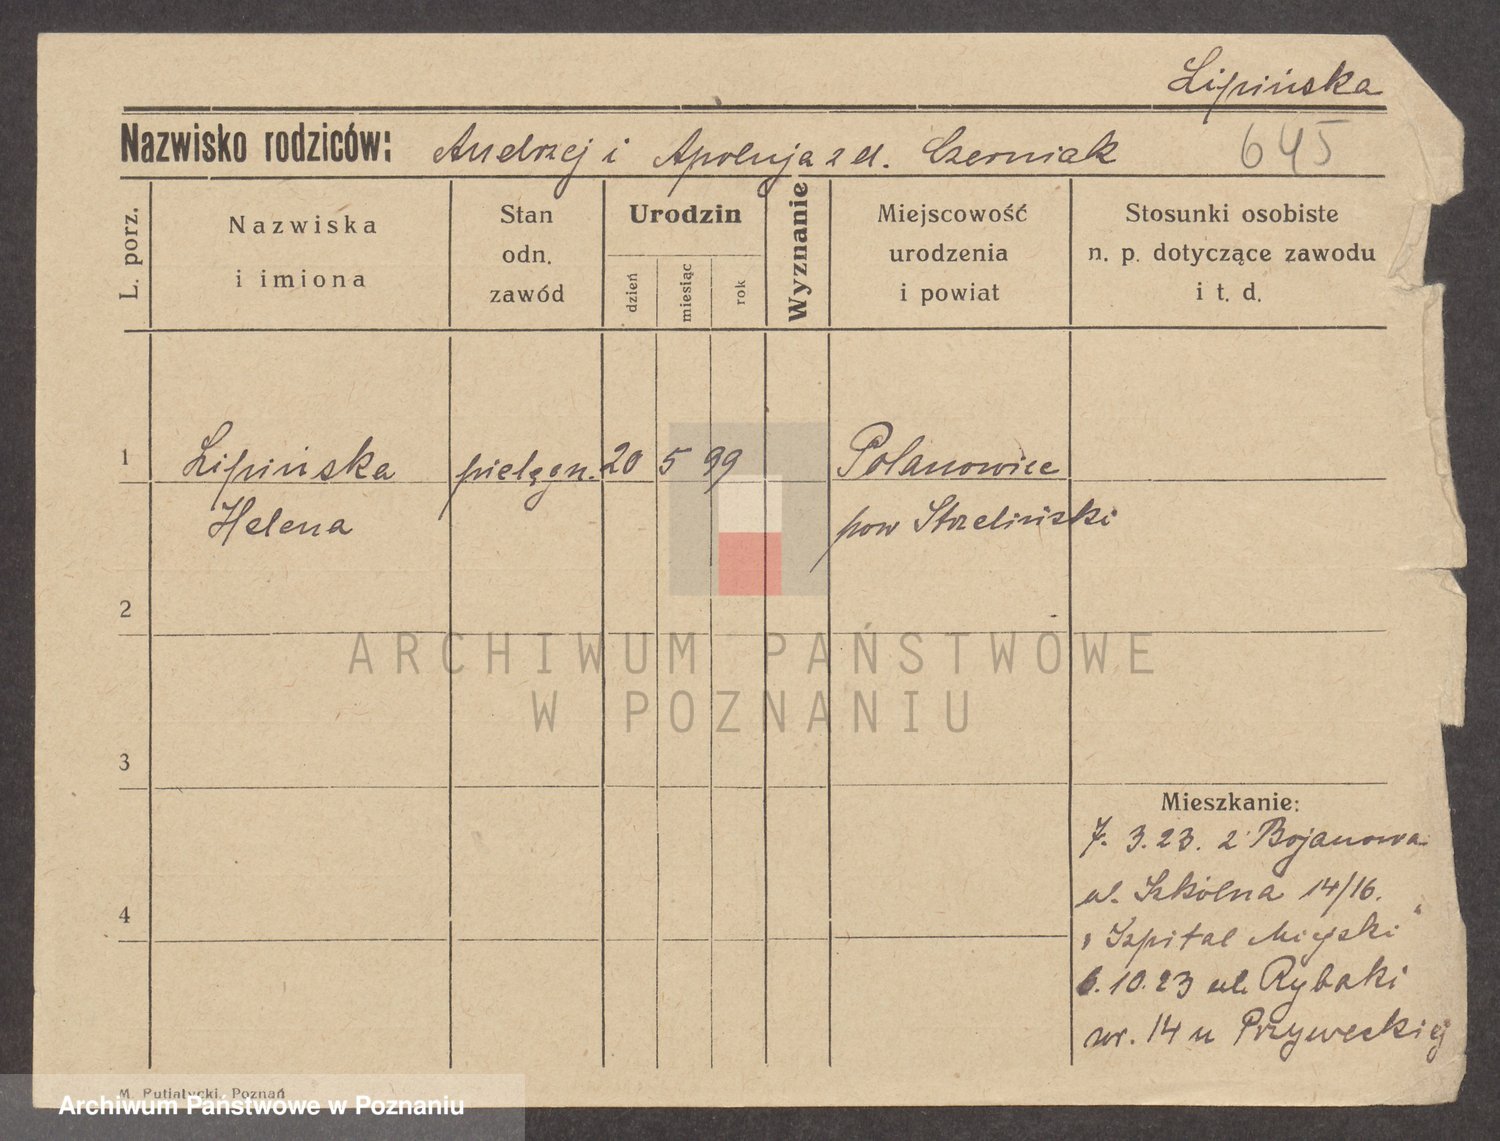 Lipińska
Nazwisko rodziców: Andrzej i Apolnja z d. Czerniak 645
L. porz.
Nazwiska
i imiona
Stan
odn.
zawód
Urodzin
dzień
miesiąc
rok
Wyznanie
Miejscowość
urodzenia
i powiat
Stosunki osobiste
n. p. dotyczące zawodu
i t. d.
1 Lipińska pielęgn. 20 5 99 Polanowice
Helena pow Strzeliński
2
3
4
Mieszkanie:
7. 3. 23. z Bojanowa
ul. Szkólna 14/16.
„Szpital Miejski"
6. 10. 23 ul. Rybaki
nr. 14 u
M. Putiatycki, Poznań
ARCHIWUM PAŃSTWOWE
W POZNANIU
Archiwum Państwowe w Poznaniu